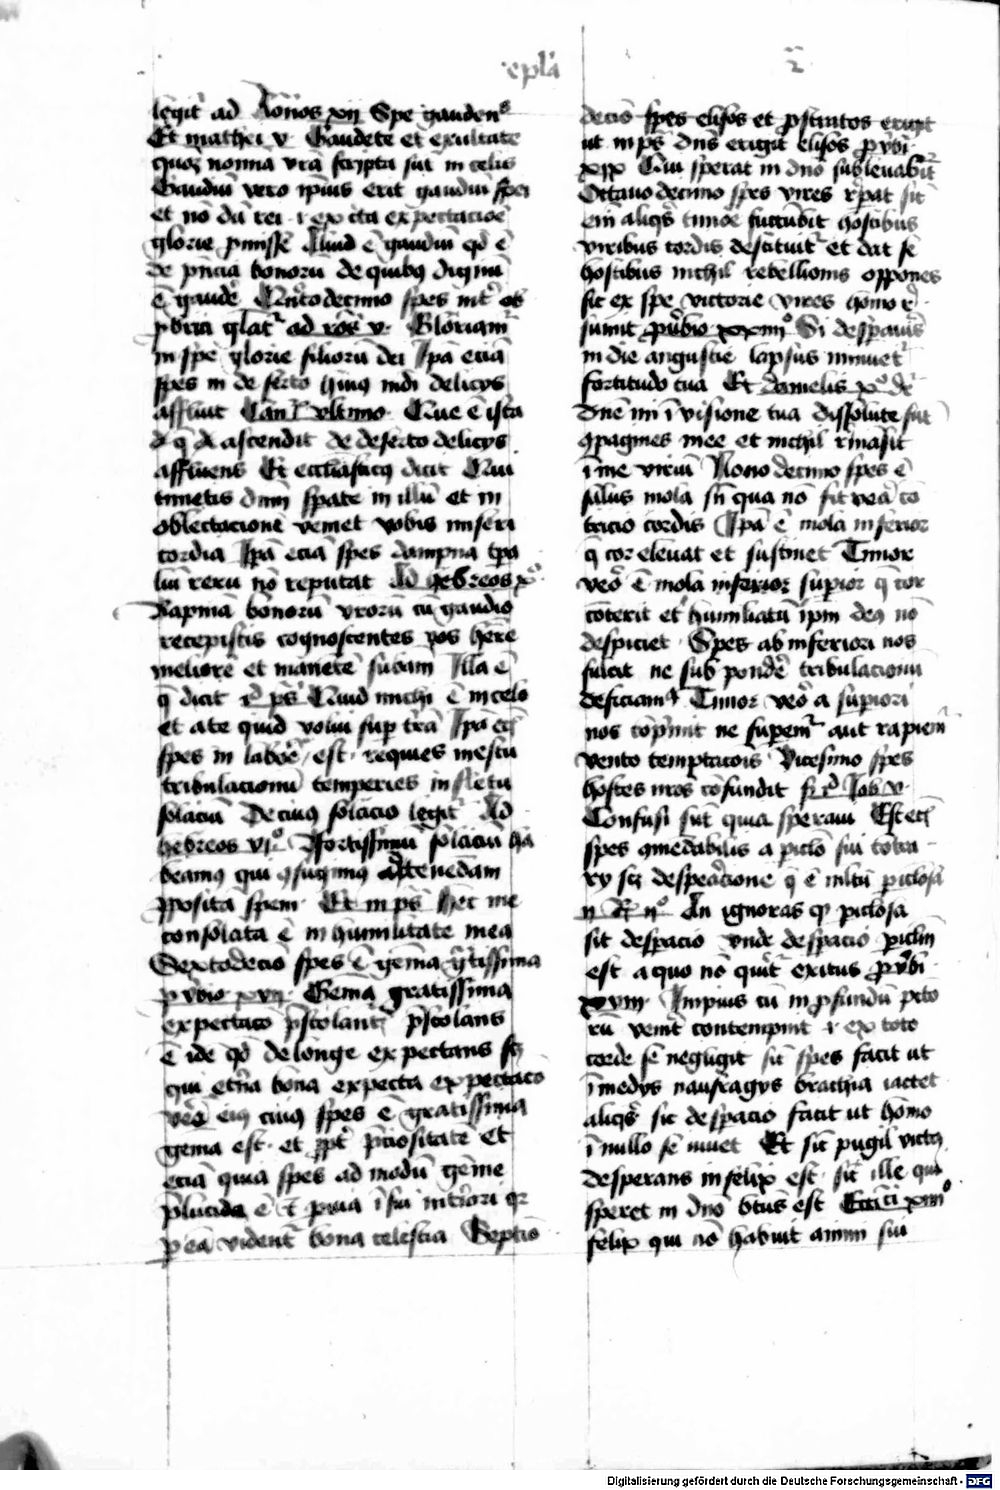 epl'a
2
legit' ad Ro'nos xij Spe gauden'
Et mathei v Gaudete et exultate
quo' no'i'a v'ra scripta su't in celis
Gaudiu' vero ip'ius erit gaudiu' spei
et no' du' rei · i· ex c'ta expectacio'e
glorie p'misse Aliud e' gaudiu' q'd e'
de p'ncia bonoru' de quib' dignu'
e' gaude' Qui'to decimo spes int' op
p'bria gl'at' ad ro's v· Gloriam'
in spe glorie filioru' dei Ip'a ecia'
spes in deserto hui' mu'di delicijs
affluit Can' vltimo· Que e' ista
q' ascendit de deserto delicijs
affluens Et eccl'iastic' dicit Qui
timetis d'nm sp'ate in illu' et in
oblectacione veniet vobis miseri
cordia Ip'a ecia' spes dampna t'pa
liu' reru' no' reputat Ad hebreos x°
Rapina' bonoru' v'roru' cu' gaudio
recepistis cognoscentes vos h'ere
meliore' et manente' s'ub'am Illa e'
q' dicit i' ps' Quid michi e' in celo
et a te quid volui sup' t'ra' Ip'a ec'
spes in labo'e est· requies mestu
tribulacionu' temperies in fletu
solaciu' De cui' solacio legit' Ad
hebreos vi° Fortissimu' solaciu' ha
beam' qui co'fugim' ad tenendam
p'posita' spem· Et in ps' Hec me
consolata e' in humilitate mea
Sextodecio spes e' gema g'tissima
p'vbio' xvij· Gema gratissima
expectacio p'stolant' p'stolans
e' ide' q'd de longe expectans s'
qui et'na bona expecta expectacio
vero ei' cui' spes e' gratissima
gema est· et p'pt' p'ciositate' Et
ecia' quia spes ad modu' geme
p'lucida e' p'uia i' sui int'iori q'
p' ea' vident' bona celestia Septi'o
decio spes elisos et p'stratos erigit
ut in ps' D'ns erigit elisos p'v'bi·
xxix Qui sperat in d'no subleuabit'
Octauo decimo spes vires r'pat sic
em' aliq's timoe succu'bit hostibus
viribus cordis destituit' et dat se
hostibus nichil rebellionis oppones
sic ex spe victorie vires homo r'
sumit p'v'bio' xxiiii° Si desp'aueris
in die angustie lapsus minuet'
fortitudo tua Et danielis x° d'
D'ne mi i' visione tua dissolute su't
co'pagines mee et nichil r'ma'sit
i' me viriu' Nono decimo spes e'
silus mola si'n qua no' fit vera co'
tricio cordis Ip'a e' mola inferior
q' cor eleuat et sustinet Timor
vero e' mola sup'ior q' cor
co'terit et humiliatu' ip'm deus no'
despiciet· Spes ab inferiori nos
fulcit ne sub pondere tribulacionu'
deficiam' Timor vero a sup'iori
nos co'p'mit ne supem' aut rapiem'
vento temptaco'is Vicesimo spes
hostes n'ros co'fundit Iob v·
Confusi su't quia speraui Est ec'
spes co'me'dabilis a p'iclo' sui co'tra
rij sc' desperacione q' e' m'ltu' p'iclosa
An ignoras q' p'iclosa
sit desp'acio vnde desp'acio p'iclm
est a quo no' qu'it' exitus p'v'bi·
xviii· Impius cu' in p'fundu' p'cto
ru' veni't contempnit ·i· ex toto
corde se' negligit sic' spes facit ut
i' medijs naufragijs brachia iactet
aliq's' sic desp'acio facit ut homo
i' nullo se' iuuet Et sic' pugil vict'
desperans infelix est· sic' ille qui
speret in d'no b'tus est Ecc'ici xiiii°
felix qui no' habuit a'i'mi sui
Digitalisierung gefördert durch die Deutsche Forschungsgemeinschaft - DFG